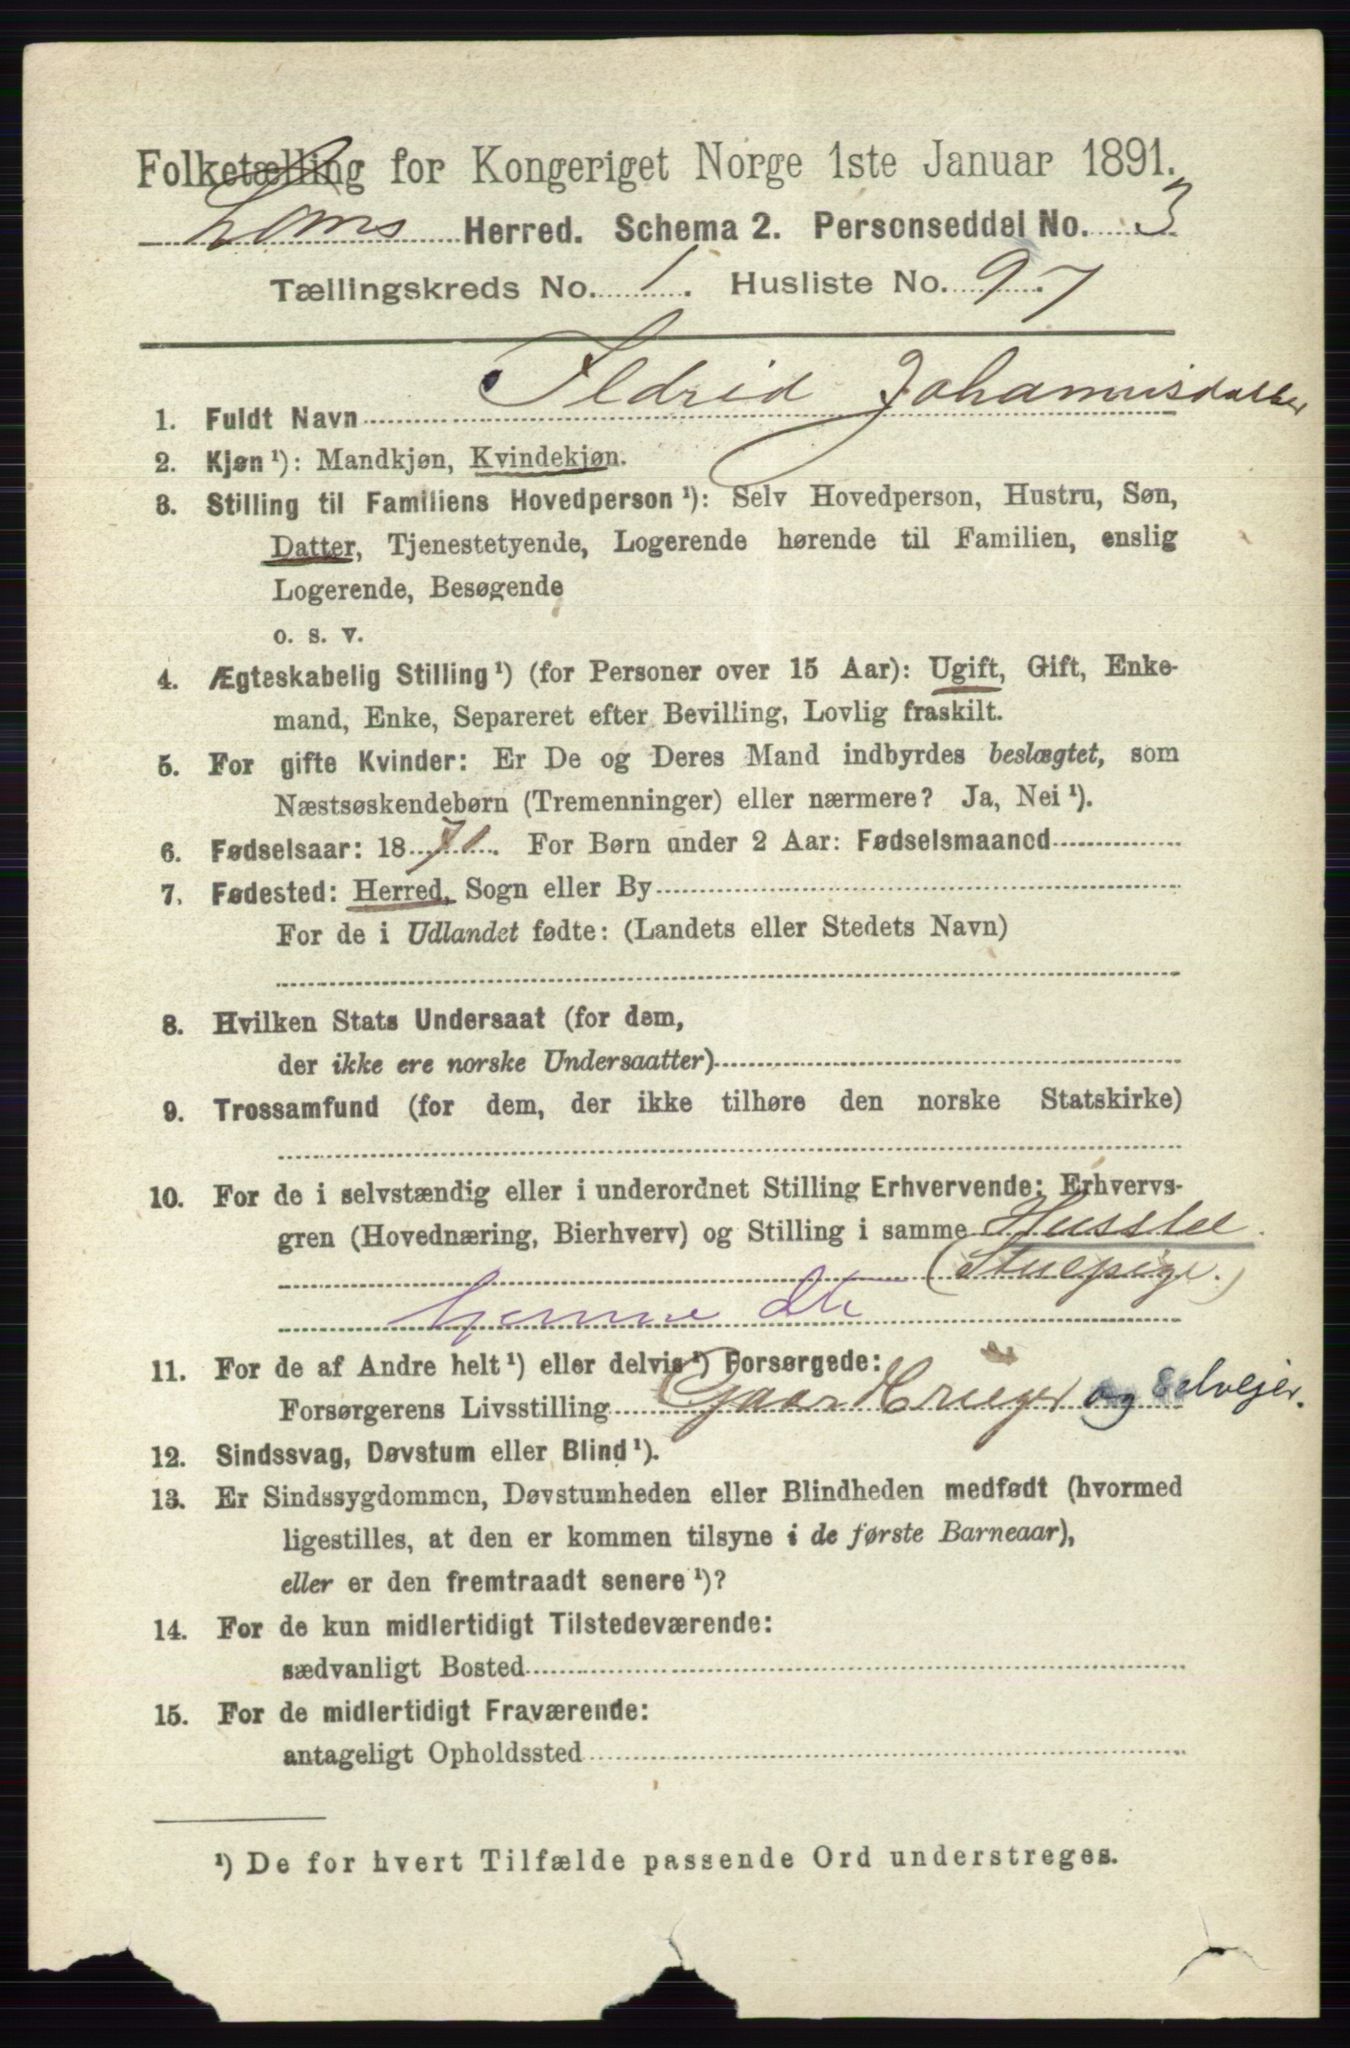 Folketælling for Kongeriget Norge 1ste Januar 1891.
Loms Herred. Schema 2. Personseddel No. 3
Tællingskreds No. 1. Husliste No. 97
1. Fuldt Navn Ildrid Johannisdatter
2. Kjøn¹): Mandkjøn, Kvindekjøn.
3. Stilling til Familiens Hovedperson¹): Selv Hovedperson, Hustru, Søn,
Datter, Tjenestetyende, Logerende hørende til Familien, enslig
Logerende, Besøgende
o. s. v.
4. Ægteskabelig Stilling¹) (for Personer over 15 Aar): Ugift, Gift, Enke-
mand, Enke, Separeret efter Bevilling, Lovlig fraskilt.
5. For gifte Kvinder: Er De og Deres Mand indbyrdes beslægtet, som
Næstsøskendebørn (Tremenninger) eller nærmere? Ja, Nei¹).
6. Fødselsaar: 1871. For Børn under 2 Aar: Fødselsmaaned
7. Fødested: Herred, Sogn eller By
For de i Udlandet fødte: (Landets eller Stedets Navn)
8. Hvilken Stats Undersaat (for dem,
der ikke ere norske Undersaatter)
9. Trossamfund (for dem, der ikke tilhøre den norske Statskirke)
10. For de i selvstændig eller i underordnet Stilling Erhvervende: Erhvervs-
gren (Hovednæring, Bierhverv) og Stilling i samme Husstel
(Stuepige.)
hjemme dtr
11. For de af Andre helt¹) eller delvis¹) Forsørgede:
Forsørgerens Livsstilling Gaardbruger og Selvejer.
12. Sindssvag, Døvstum eller Blind¹).
13. Er Sindssygdommen, Døvstumheden eller Blindheden medfødt (hvormed
ligestilles, at den er kommen tilsyne i de første Barneaar),
eller er den fremtraadt senere¹)?
14. For de kun midlertidigt Tilstedeværende:
sædvanligt Bosted
15. For de midlertidigt Fraværende:
antageligt Opholdssted
¹) De for hvert Tilfælde passende Ord understreges.